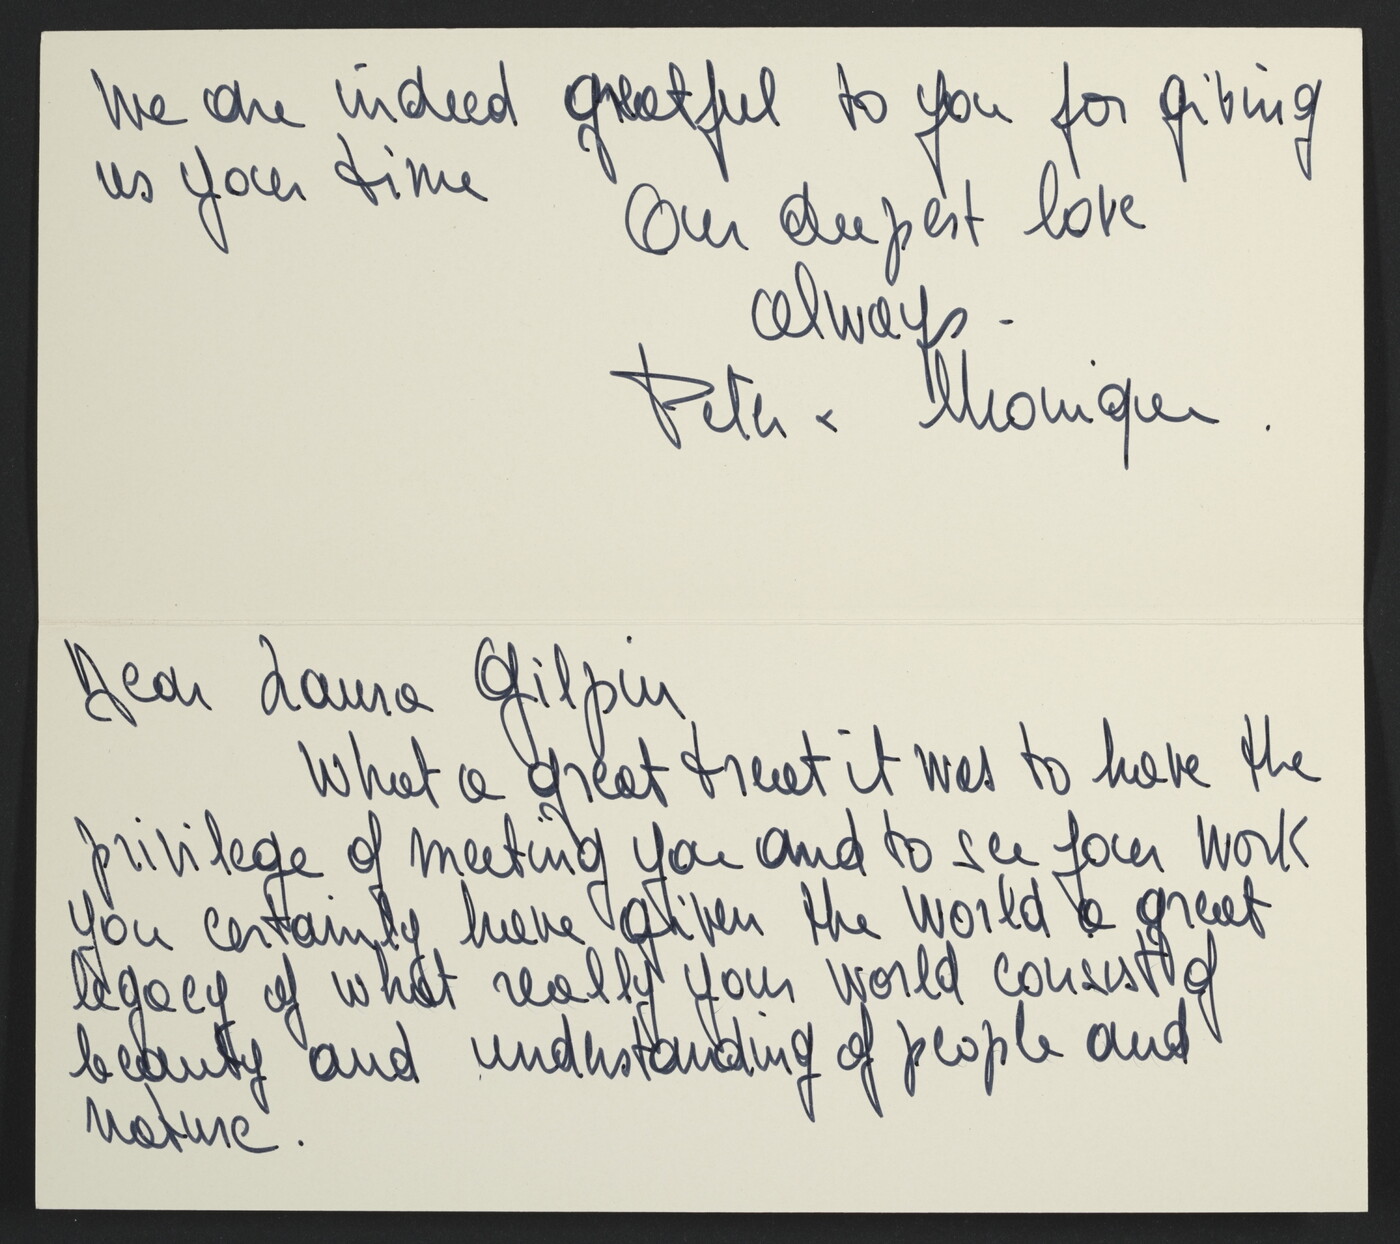 We are indeed greatful to you for giving
us your time
Our deepest love
always -
Peter & Monique.
Dear Laura Gilpin
What a great treat it was to have the
privilege of meeting you and to see your work
you certainly have given the world a great
legacy of what really your world consist of
beauty and understanding of people and
nature.